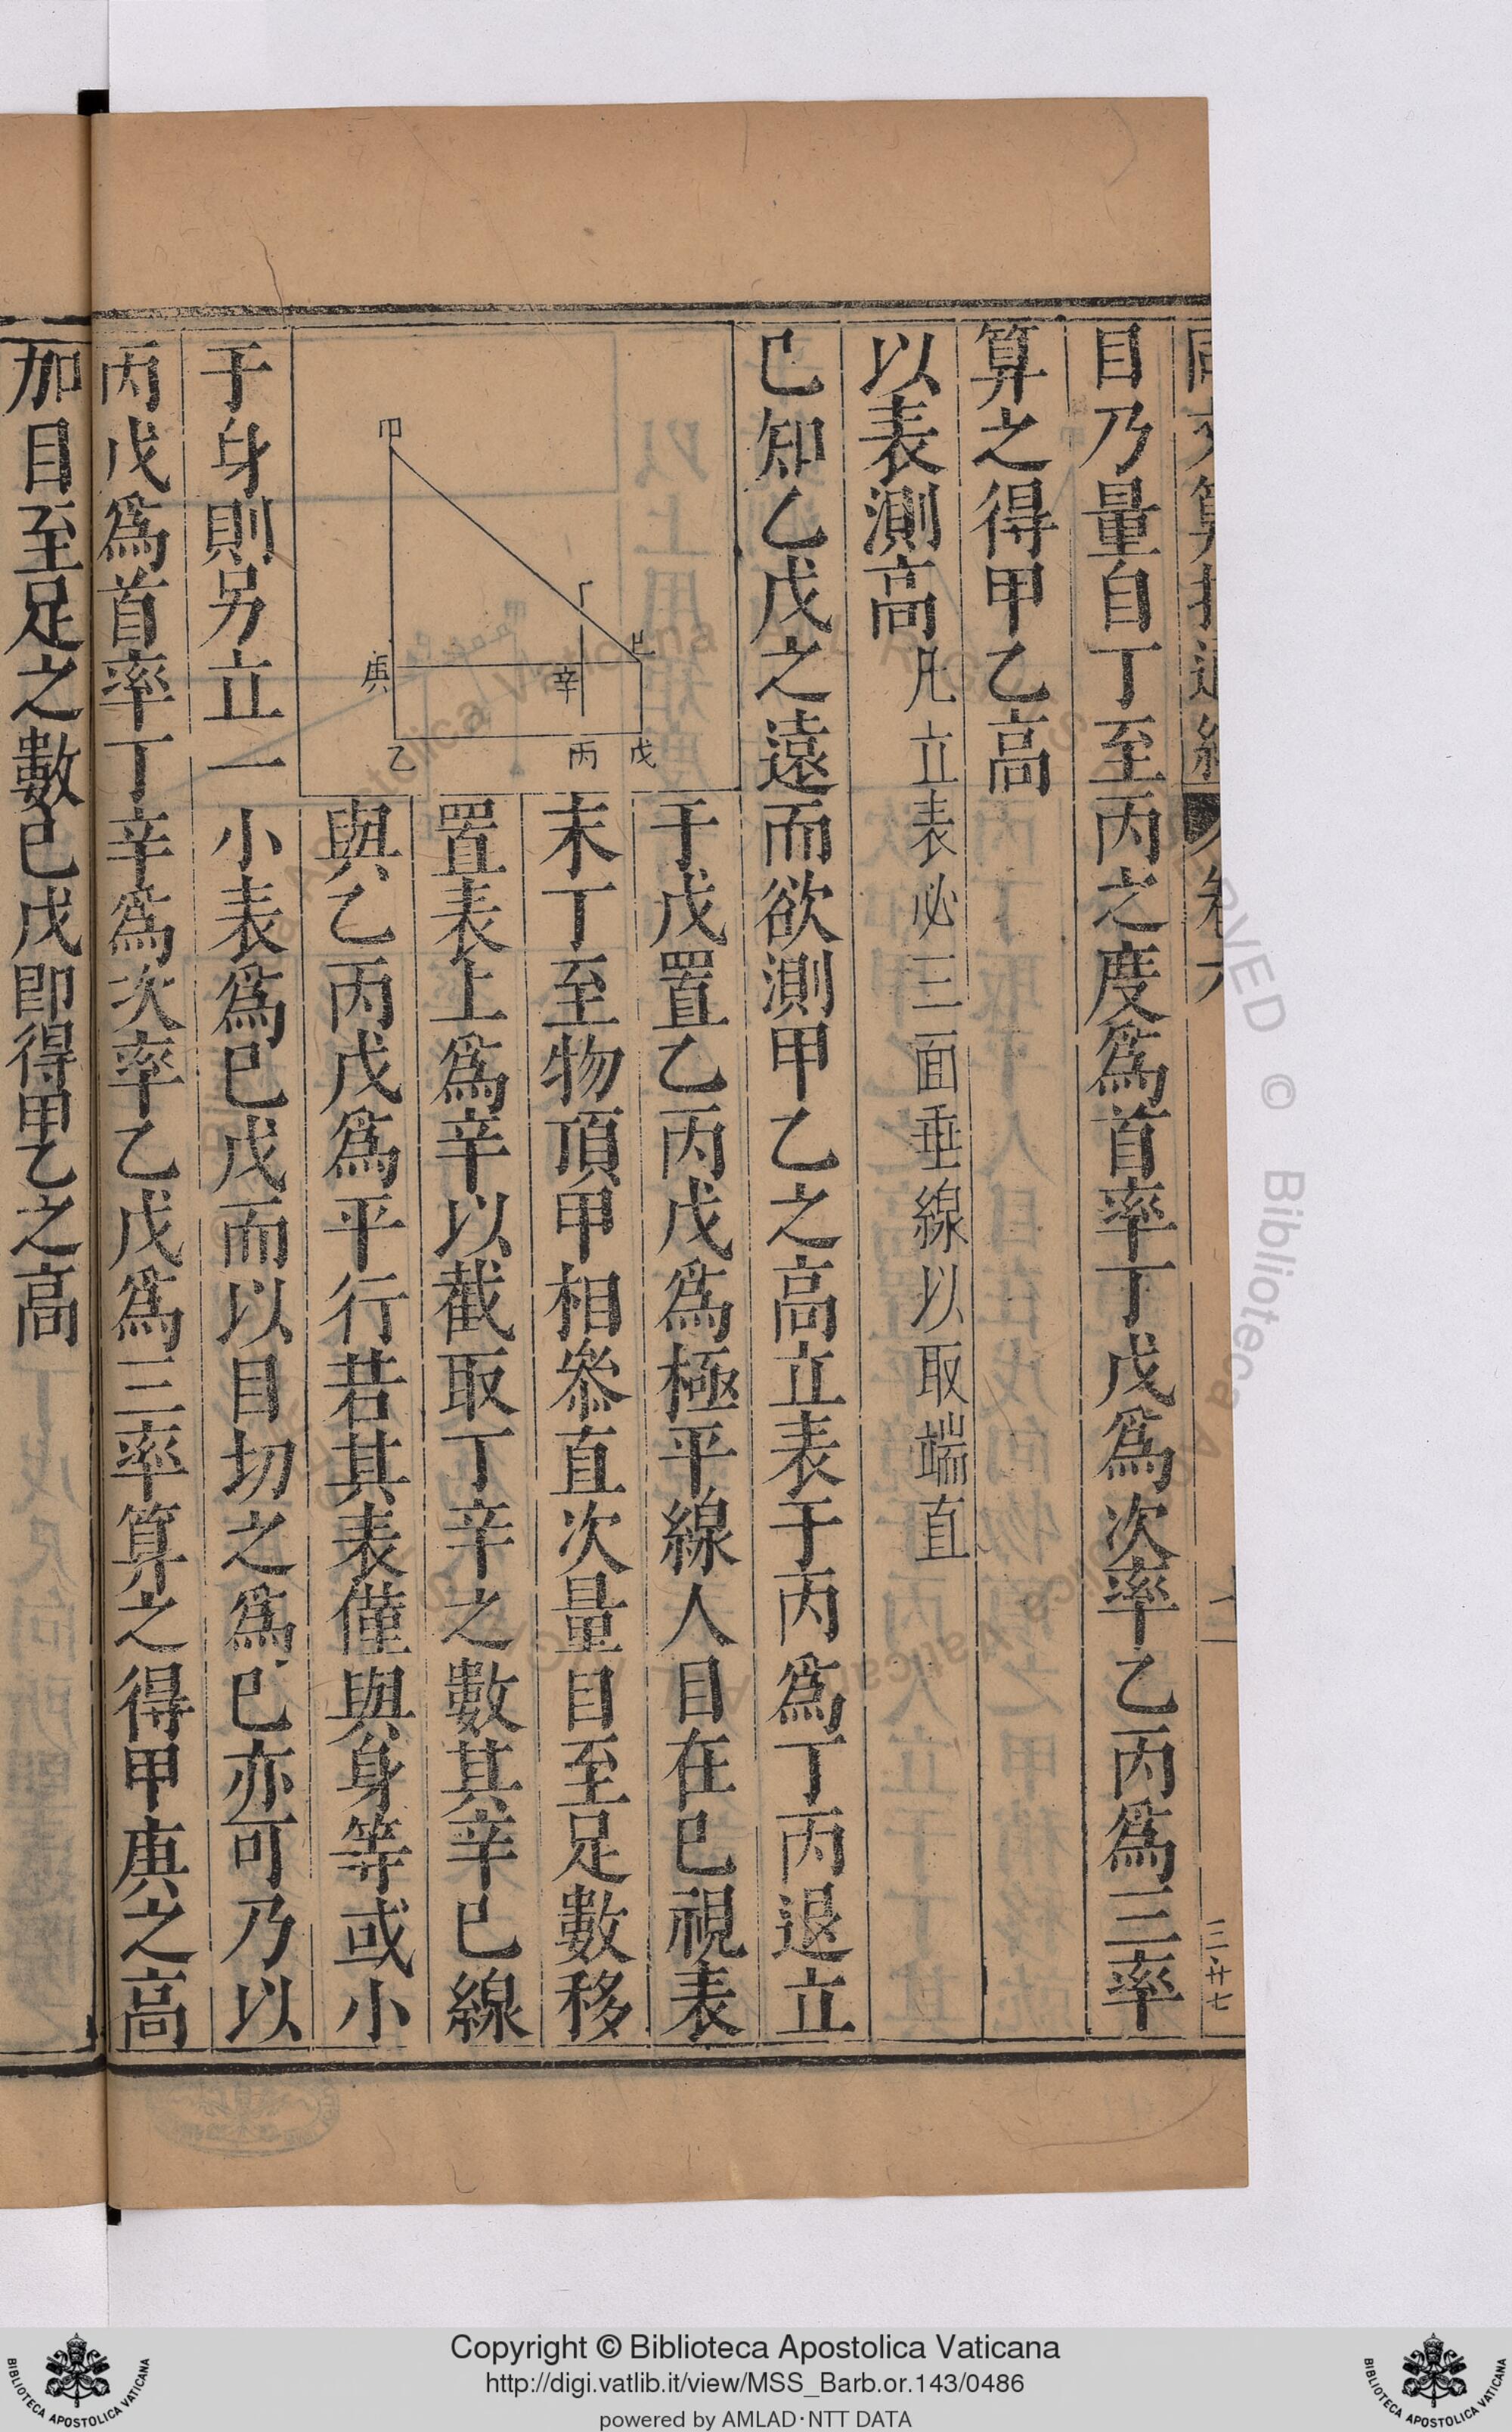 目乃量自丁至丙之度爲首率丁戊爲次率乙丙爲三率
算之得甲乙高
以表測高凡立表必三面垂線以取端直
已知乙戊之遠而欲測甲乙之高立表于丙爲丁丙退立
于戊置乙丙戊爲極平線人目在已視表
末丁至物頂甲相叅直次量目至足數移
置表上爲辛以截取丁辛之數其辛已線
與乙丙戊爲平行若其表僅與身等或小
于身則另立一小表爲已戊而以目切之爲已亦可乃以
丙戊爲首率丁辛爲次率乙戊爲三率算之得甲庚之高
加目至足之數已戊即得甲乙之高
甲
丁
已
庚
辛
乙
丙
戊
三廿七
Copyright © Biblioteca Apostolica Vaticana
http://digi.vatlib.it/view/MSS_Barb.or.143/0486
powered by AMLAD·NTT DATA
BIBLIOTECA APOSTOLICA VATICANA
BIBLIOTECA APOSTOLICA VATICANA